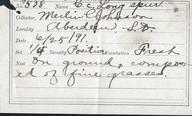 No. 538 Name C. C. Longspur
Collector, Merlin C. Johnson
Locality Aberdeen S.D.
Date 6/25/91.
Set 1/4 Identity Positive Fresh
Nest On ground, compos
ed of fine grasses.